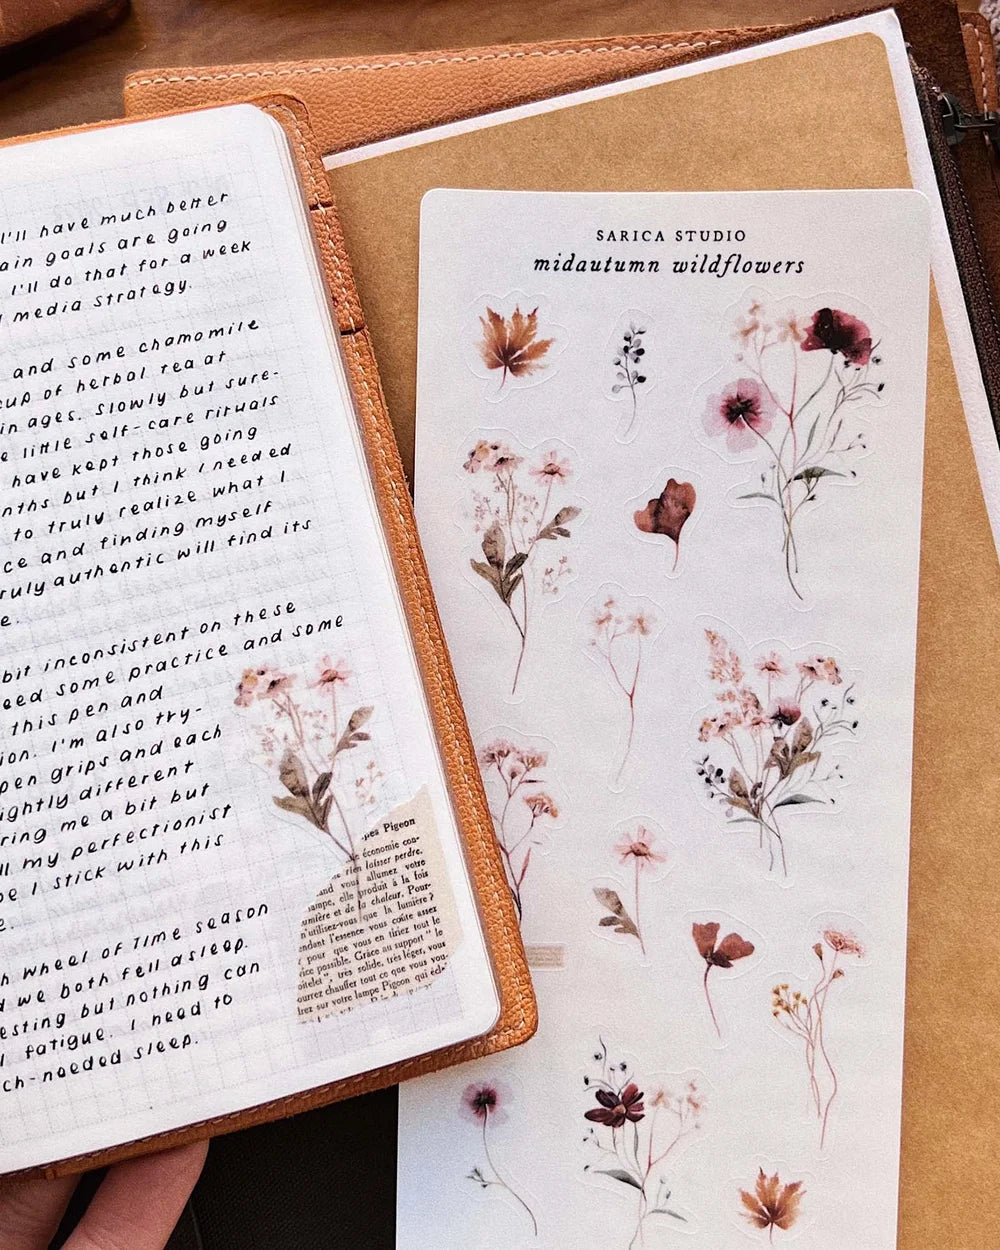 I'll have much better
ain goals are going
I'll do that for a week
media strategy.
and some chamomile
cup of herbal tea at
in ages. Slowly but sure-
little self-care rituals
have kept those going
nths but I think I needed
to truly realize what I
ce and finding myself
ruly authentic will find its
e.
bit inconsistent on these
eed some practice and some
this pen and
ion. I'm also try-
pen grips and each
ightly different
ring me a bit but
ll my perfectionist
be I stick with this
e.
h Wheel of Time season
d we both fell asleep.
esting but nothing can
l fatigue. I need to
ch-needed sleep.
pes Pigeon
le économie con-
rien laisser perdre.
and vous allumez votre
ampe, elle produit à la fois
umière et de la chaleur. Pour-
n'utilisez-vous que la lumière?
endant l'essence vous coûte assez
pour que vous en tiriez tout le
vice possible. Grâce au support " le
oitelet ", très solide, très léger, vous
ourrez chauffer tout ce que vous vou-
drez sur votre lampe Pigeon qui écl
SARICA STUDIO
midautumn wildflowers